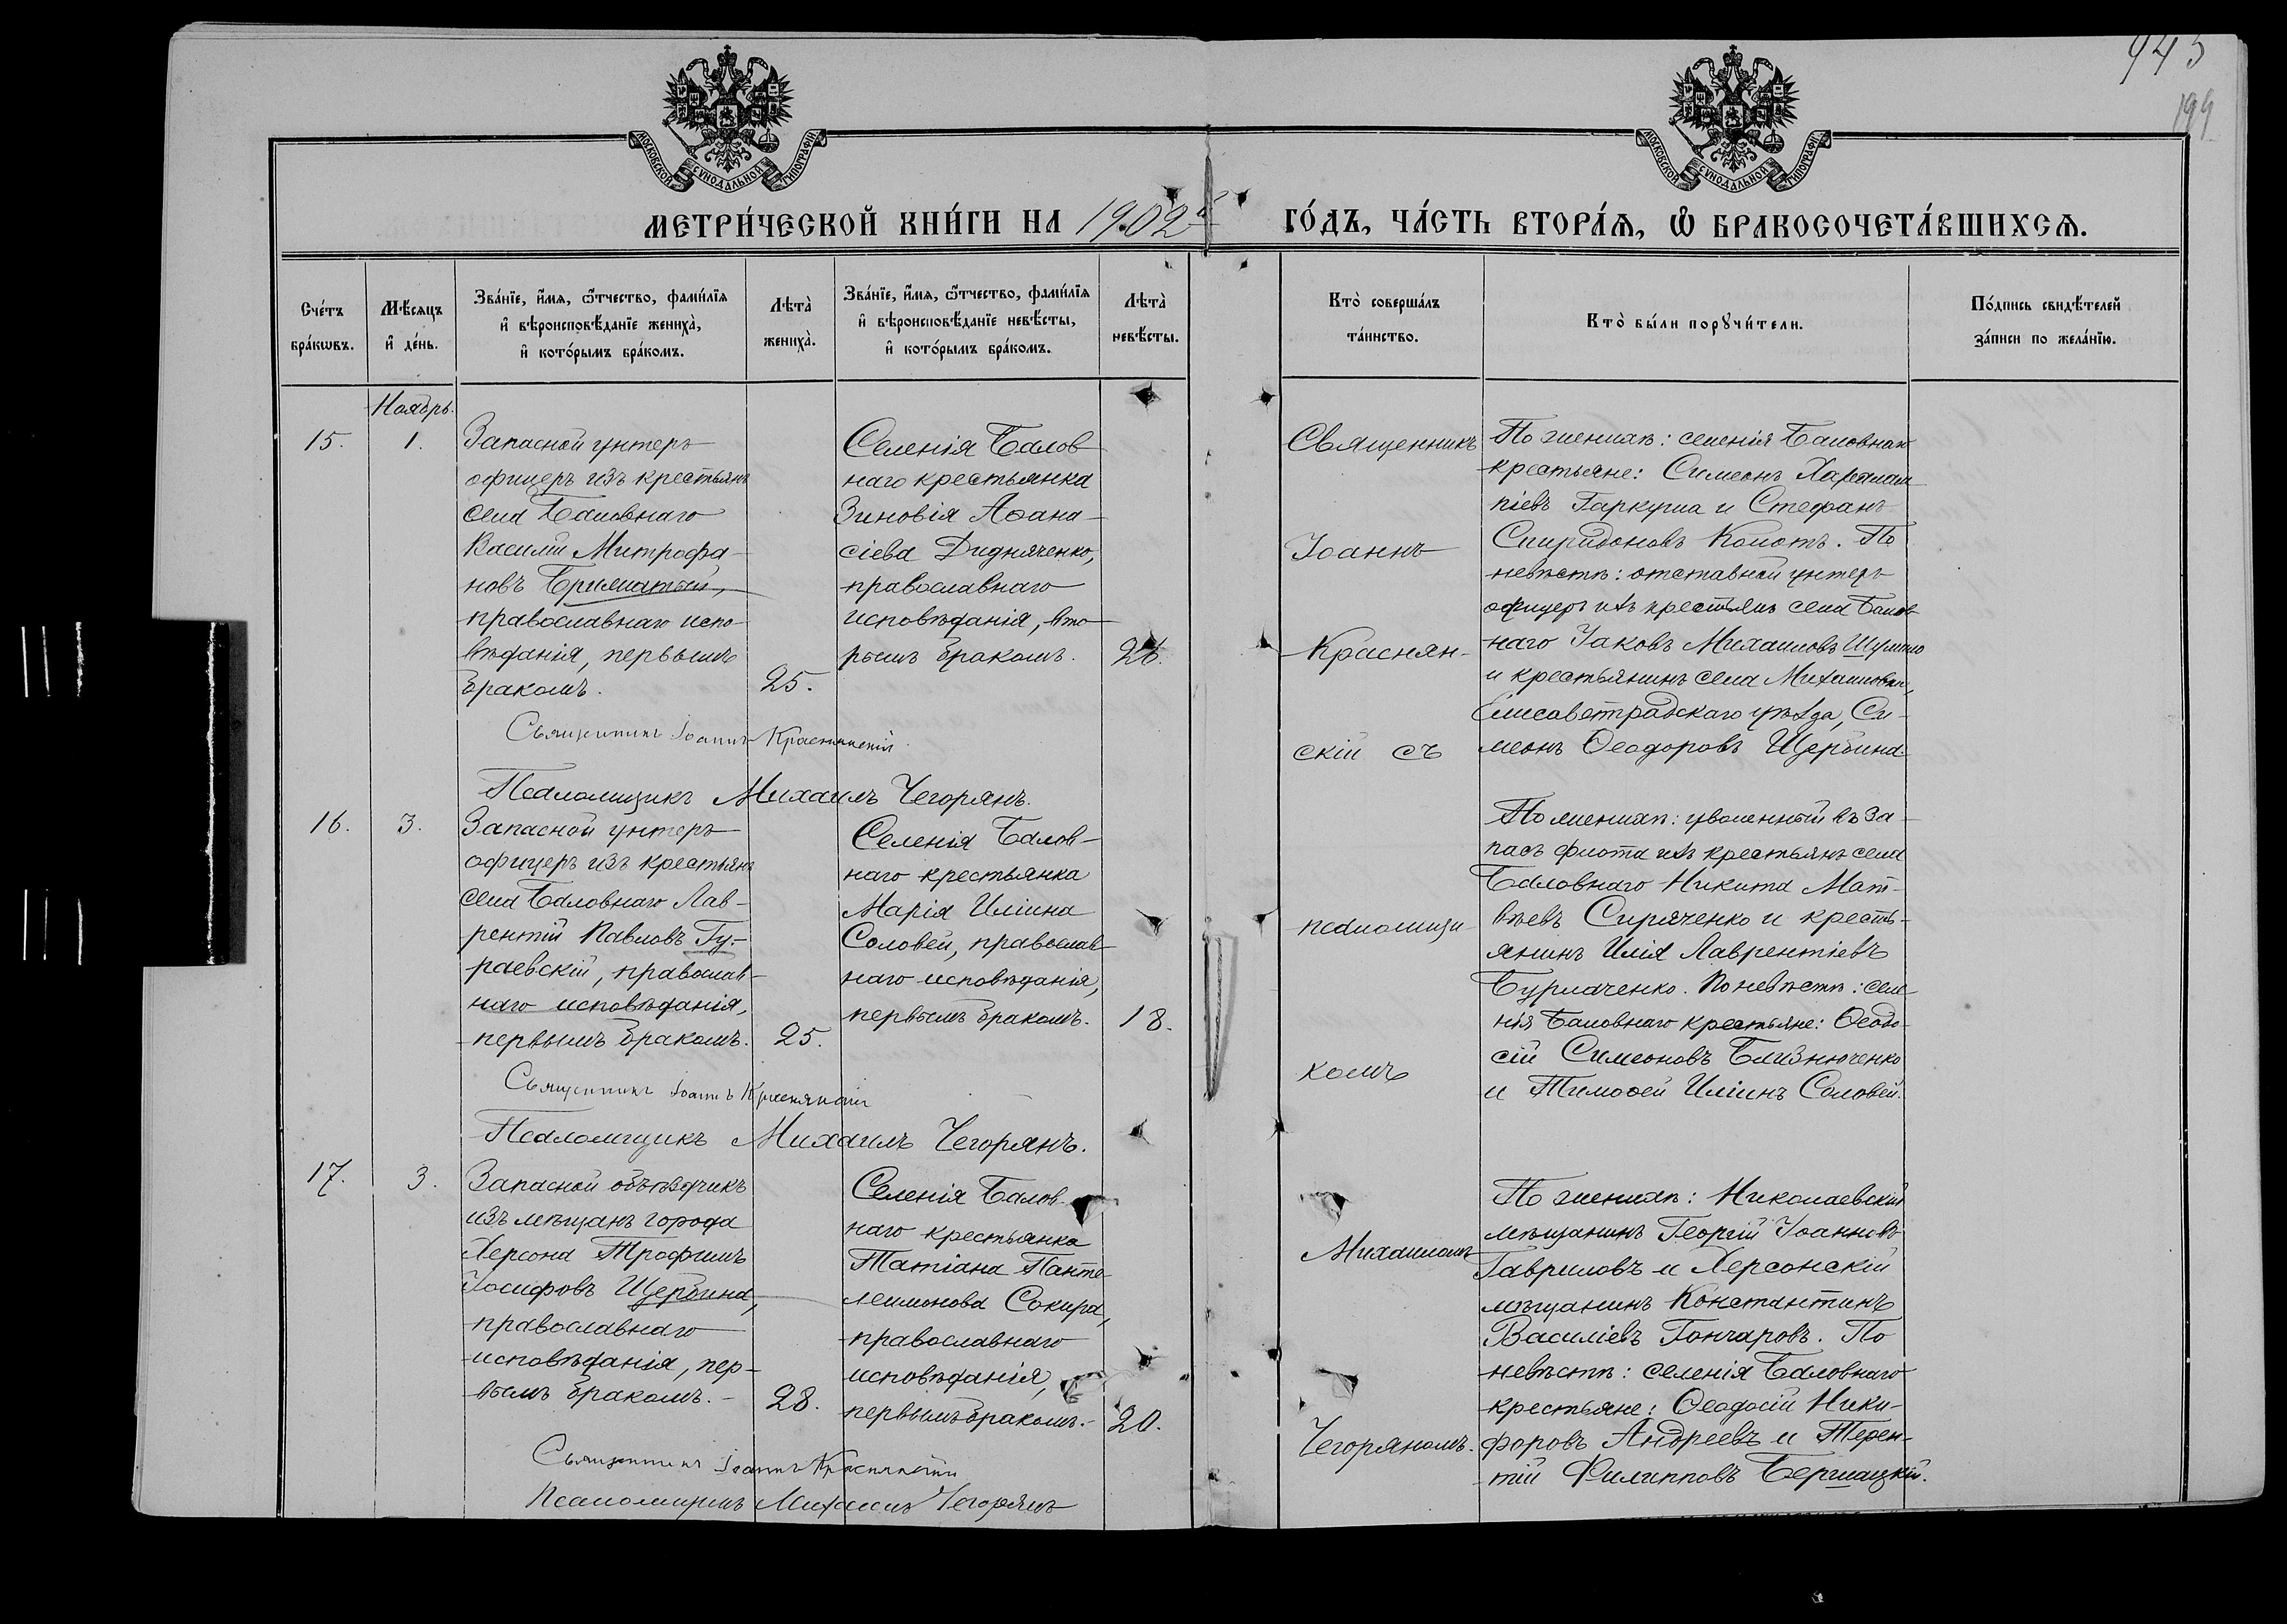 943
199
МОСКОВСКОЙ СѴНОДАЛЬНОЙ ТИПОГРАФІИ
МОСКОВСКОЙ СѴНОДАЛЬНОЙ ТИПОГРАФІИ
МЕТРИ́ЧЕСКОЙ КНИ́ГИ НА 1902й ГО́ДЪ, ЧА́СТЬ ВТОРА́Я, Ѿ БРАКОСОЧЕТА́ВШИХСѦ.
Сче́тъ бра́кѡвъ.
Мѣ́сяцъ и҆ де́нь.
Зва́нїе, и҆́мѧ, ѻ҆́тчество, фами́лїѧ
и҆ вѣроисповѣ́данїе жениха̀,
и҆ кото́рымъ бра́комъ.
Лѣта̀ жениха̀.
Зва́нїе, и҆́мѧ, ѻ҆́тчество, фами́лїѧ
и҆ вѣроисповѣ́данїе невѣ́сты,
и҆ кото́рымъ бра́комъ.
Лѣта̀ невѣ́сты.
Кто̀ соверша́лъ та́инство.
Кто̀ бы́ли порꙋчи́тели.
По́дпись свидѣ́телей за́писи по жела́нїю.
Ноябрь.
15.
1.
Запасной унтеръ
офицеръ изъ крестьянъ
села Баловнаго
Василій Митрофа-
новъ Бриматый,
православнаго испо-
вѣданія, первымъ
бракомъ.
25.
Селенія Балов
наго крестьянка
Зиновія Аѳана-
сіева Дидняченко,
православнаго
исповѣданія, вто-
рымъ бракомъ.
26.
Священникъ
Іоаннъ
Краснян-
скій съ
По женихѣ: селенія Баловнаго
крестьяне: Симеонъ Харлам
піевъ Гаркуша и Стефанъ
Спиридоновъ Копотъ. По
невѣстѣ: отставной унтеръ
офицеръ изъ крестьянъ села Балов
наго Іаковъ Михаиловъ Шумило
и крестьянинъ села Михайловки,
Елисаветградскаго уѣзда, Си-
меонъ Ѳеодоровъ Щербина.
Священникъ Іоаннъ Краснянскій
Псаломщикъ Михаилъ Чегорянъ.
16.
3.
Запасной унтеръ
офицеръ изъ крестьянъ
села Баловнаго Лав-
рентій Павловъ Гу-
раевскій, православ-
наго исповѣданія,
первымъ бракомъ.
25.
Селенія Балов-
наго крестьянка
Марія Иліина
Соловей, православ
наго исповѣданія,
первымъ бракомъ.
18.
псаломщи-
комъ
По женихѣ: уволенный въ за-
пасъ флота изъ крестьянъ села
Баловнаго Никита Мат-
вѣевъ Сиряченко и кресть-
янинъ Илія Лаврентіевъ
Бурлаченко. По невѣстѣ: селе
нія Баловнаго крестьяне: Ѳеодо-
сій Симеоновъ Близнюченко
и Тимоѳей Иліинъ Соловей.
Священникъ Іоаннъ Краснянскій
Псаломщикъ Михаилъ Чегорянъ.
17.
3.
Запасной объѣздчикъ
изъ мѣщанъ города
Херсона Трофимъ
Іосифовъ Щербина,
православнаго
исповѣданія, пер-
вымъ бракомъ.-
28.
Селенія Балов-
наго крестьянка
Татіана Панте-
леимонова Сокира,
православнаго
исповѣданія,
первымъ бракомъ.-
20.
Михаиломъ
Чегоряномъ.
По женихѣ: Николаевскій
мѣщанинъ Георгій Іоанновъ
Гавриловъ и Херсонскій
мѣщанинъ Константинъ
Василіевъ Гончаровъ. По
невѣстѣ: селенія Баловнаго
крестьяне: Ѳеодосій Ники-
форовъ Андреевъ и Терен-
тій Филипповъ Бершацкій.
Священникъ Іоаннъ Краснянскій
Псаломщикъ Михаилъ Чегорянъ